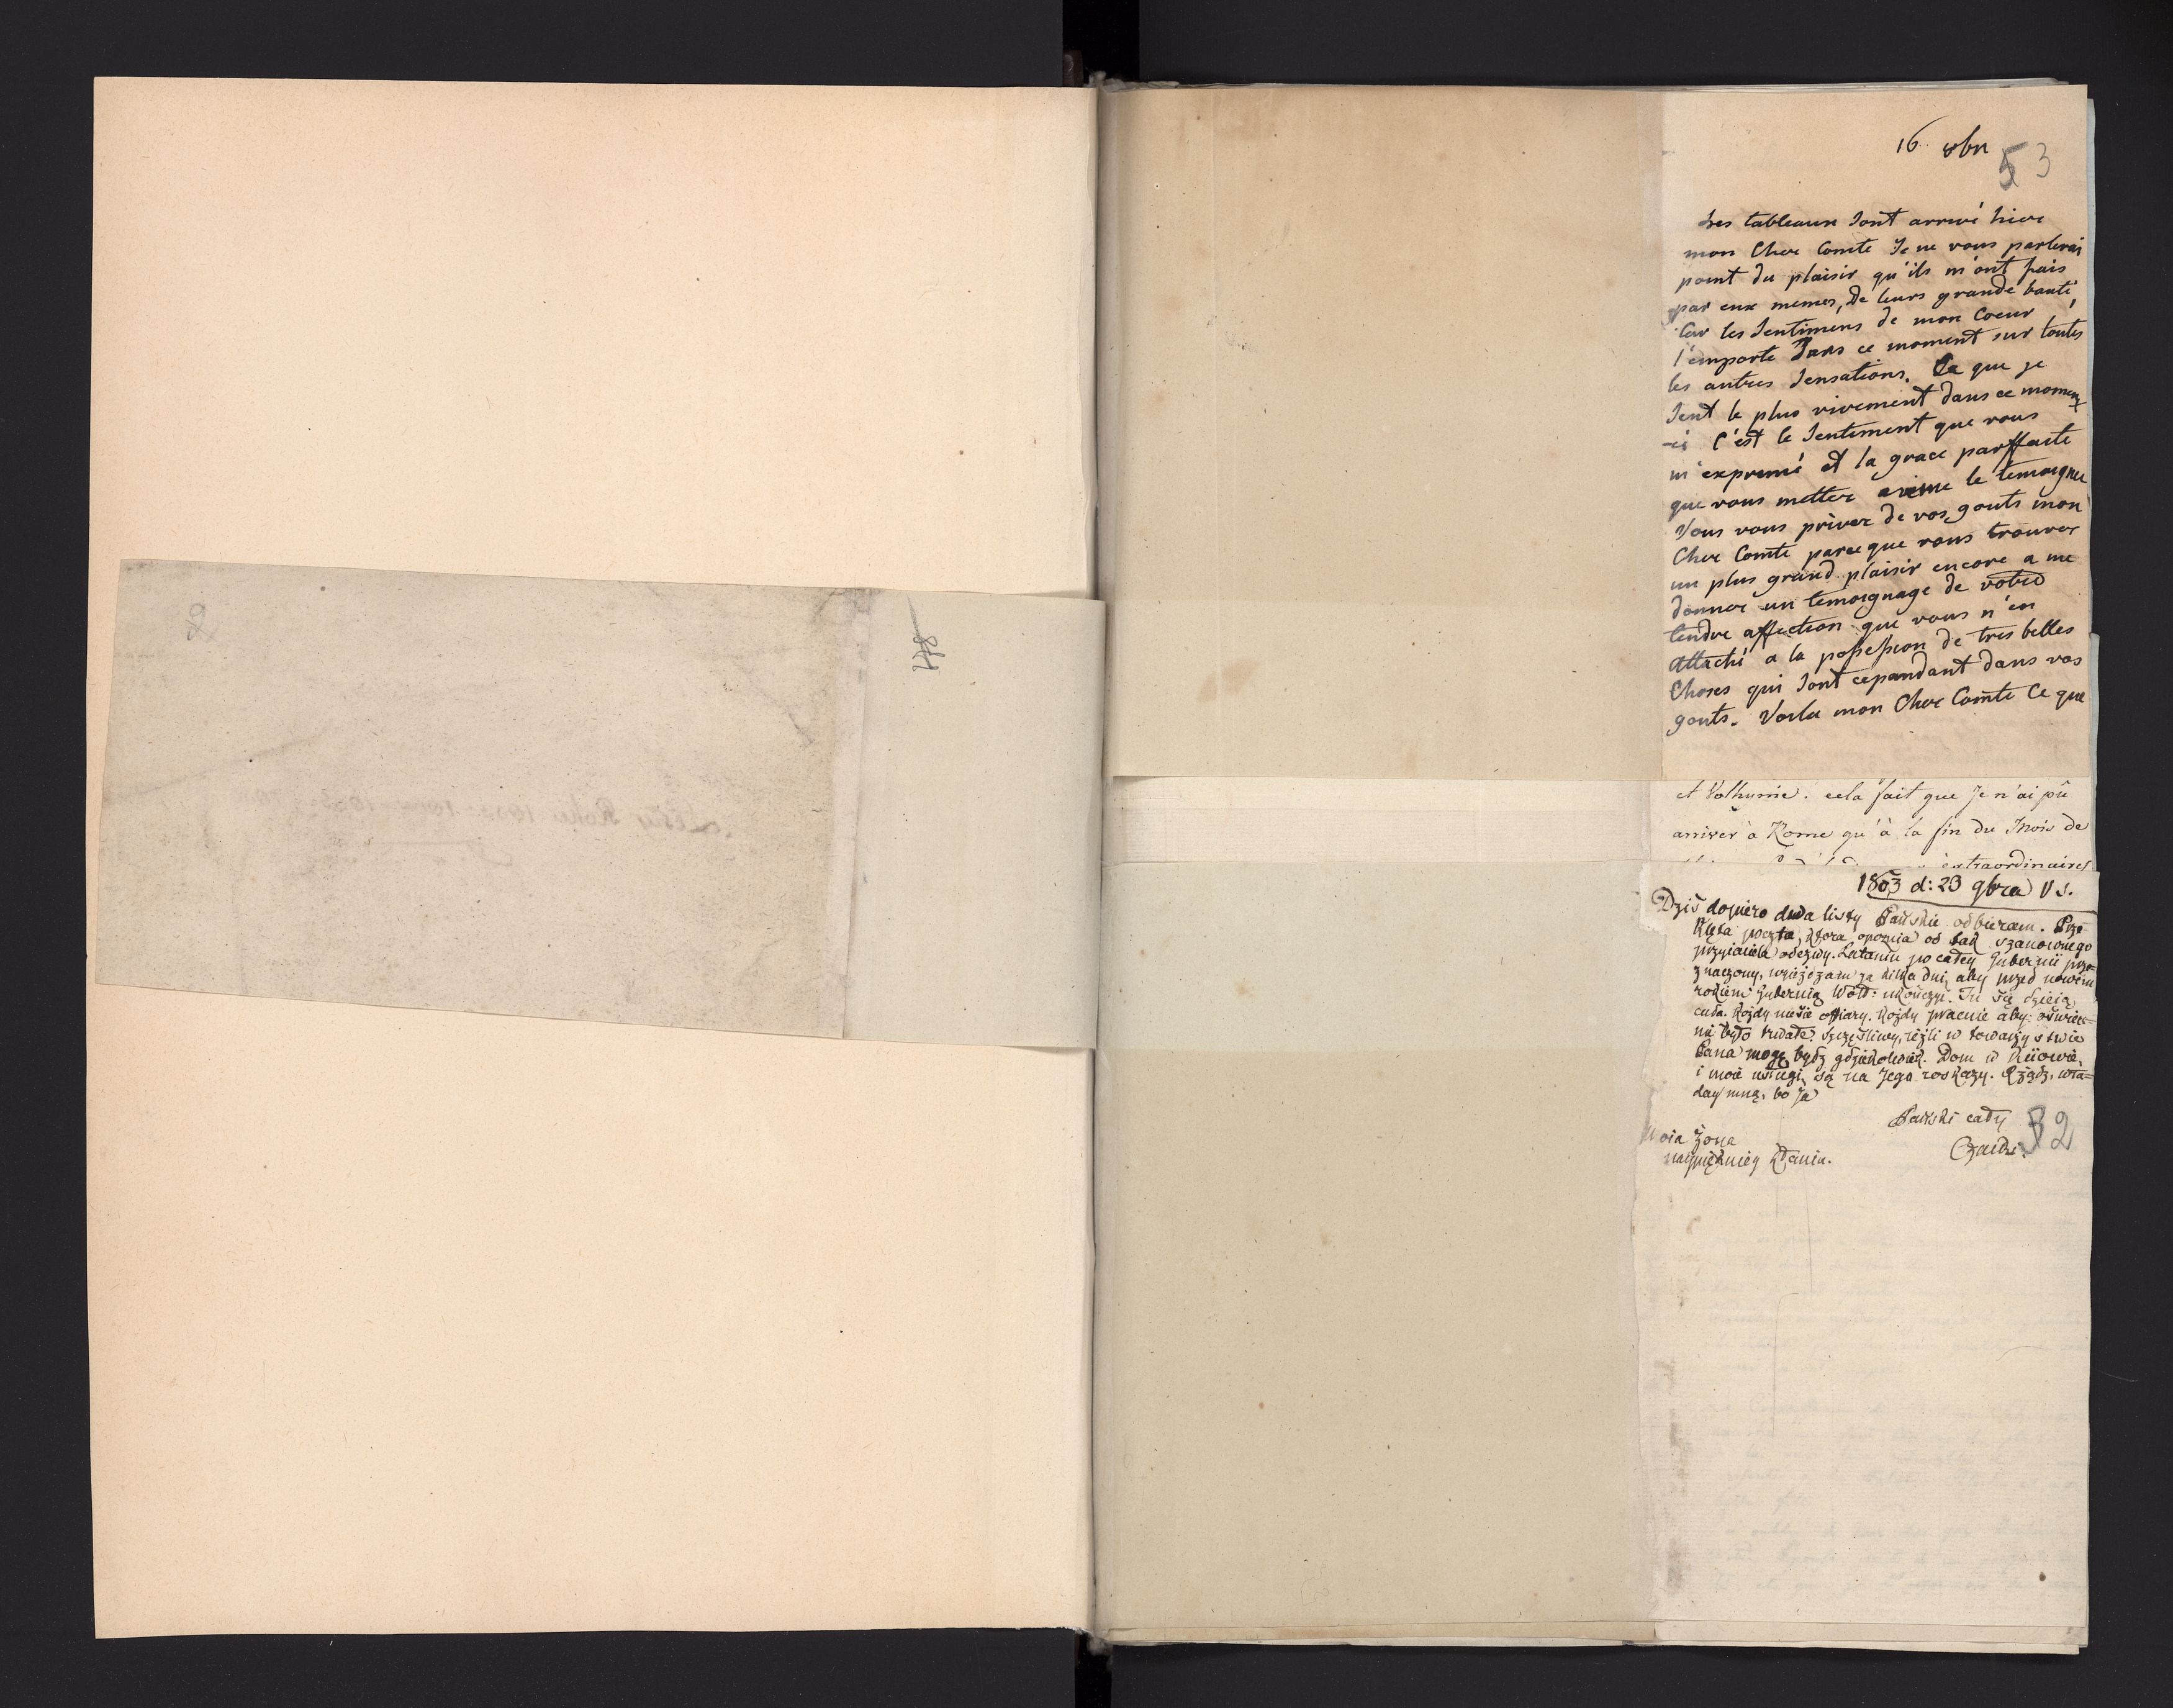 48
16 8bri
53
Les tableaux sont arrivé hier
mon Cher Comte Je ne vous parlerai
point du plaisir qu'ils m'ont fais
par eux memes, de leurs grande bauté,
Car les Sentimens de mon Coeur
l'emporte Dans ce moment sur toutes
les autres Sensations. Ce que je
Sent le plus vivement dans ce moment
-ci C'est le Sentiment que vous
m'exprimé et la grace parffaite
que vous mettez a me le temoigner
Vous vous priver de vos gouts mon
Cher Comte parceque vous trouver
un plus grand plaisir encore a me
donner un temoignage de votre
tendre affection que vous n'en
attaché a la possession de tres belles
Choses qui Sont cepandant dans vos
gouts. Voila mon Cher Comte Ce que
et Volhynie. cela fait que Je n'ai pû
arriver à Rome qu'à la fin du Mois de
extraordinaires
1803 d: 23 9bra V s.
Dziś dopiero dwa listy Pańskie odbieram. Prze-
klęta poczta, ktora opoznia od tak szanownego
przyiaciela odezwy. Lataniu po całey Gubernii prze=
znaczony, wyieżdzam za kilka dni, aby przed nowém
rokiem Gubernią Woł: ukończyć. Tu się dzieią
cuda. Kożdy niesie offiary. Kożdy pracuie aby oświece=
nie było trwałe. Szczęśliwy, ieżli w towarzystwie
Pana mogę bydź gdziekolwiek. Dom w Kiiowie,
i moie usługi są na Jego roskazy. Rządź, wła=
day mną, bo ja
Pański cały
Czacki.
52
Moia Żona
naypiękniey kłania.